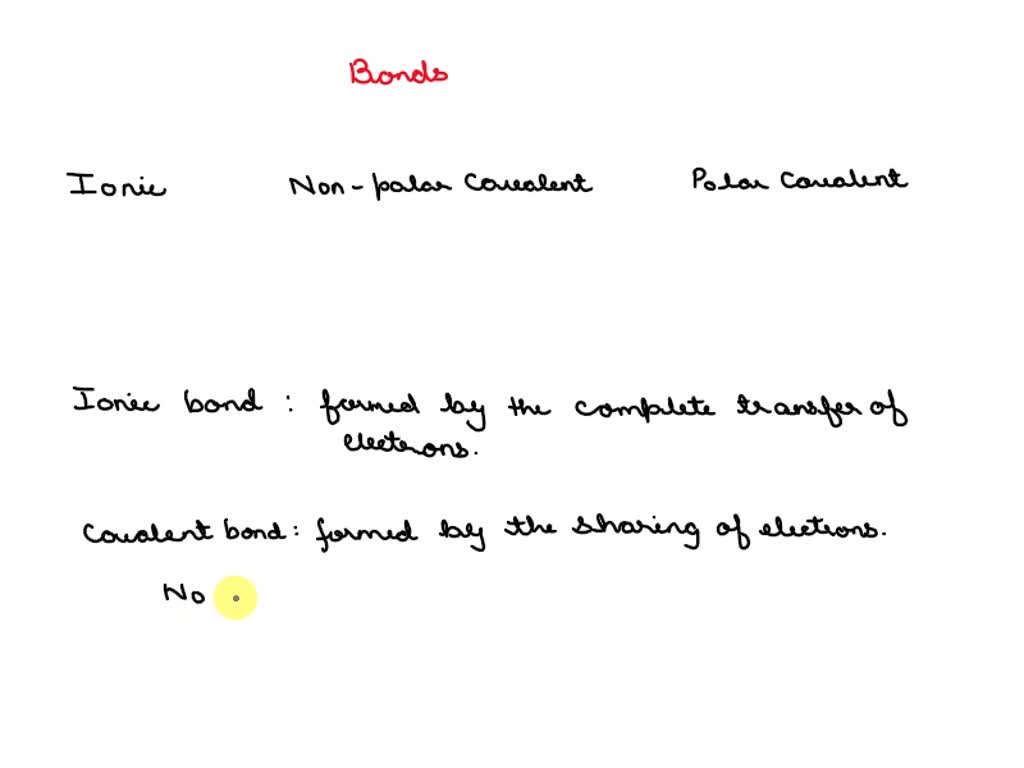 Bonds
Ionic Non-polar Covalent Polar Covalent
Ionic bond : formed by the complete transfer of
electrons.
Covalent bond : formed by the sharing of electrons.
No